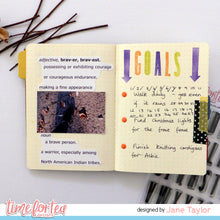 adjective, brav·er, brav·est.
possessing or exhibiting courage
or courageous endurance.
making a fine appearance
noun
a brave person.
a warrior, especially among
North American Indian tribes.
GOALS
Walk daily - yes even
if it rains
Find Christmas lights
for the front fence
Finish knitting cardigans
for Archie
time for tea
designed by Jane Taylor